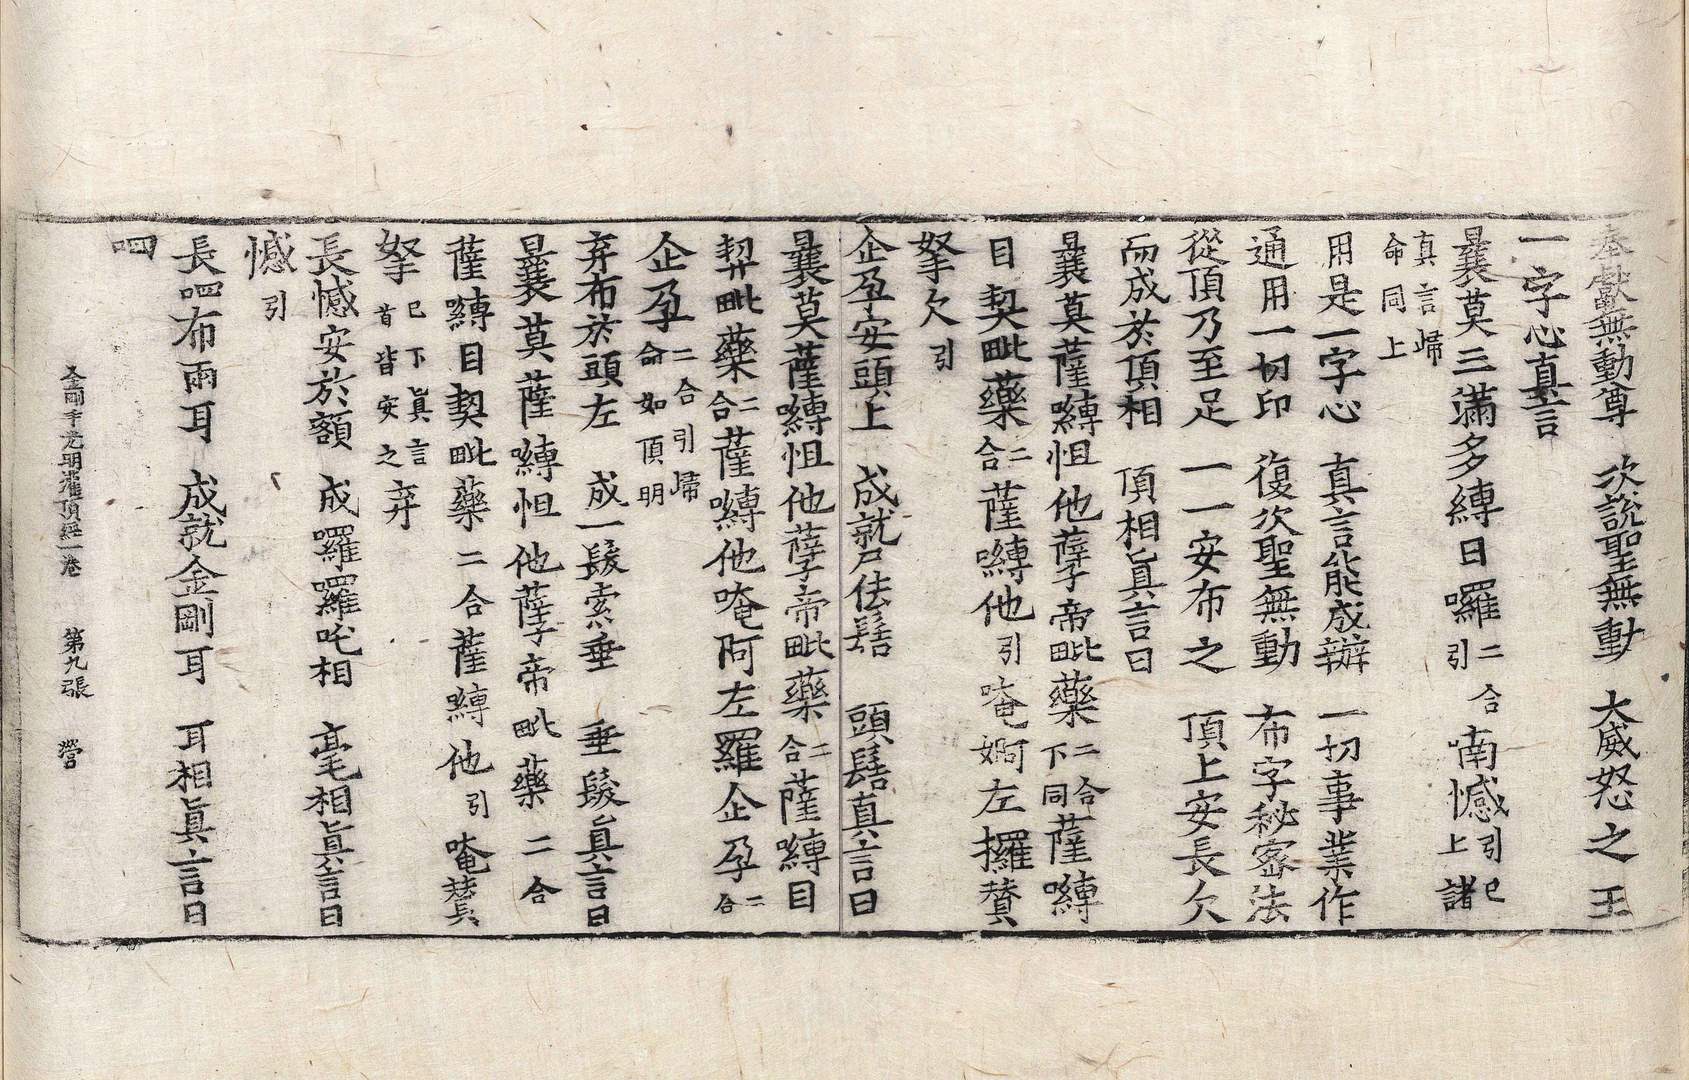 奉獻無動尊 次說聖無動 大威怒之王
一字心真言
曩莫三滿多縛日囉二合引喃引憾上已上諸
真言歸命同上
用是一字心 真言能成辦 一切事業作
通用一切印 復次聖無動 布字秘密法
從頂乃至足 一一安布之 頂上安長欠
而成於頂相 頂相眞言曰
曩莫薩嚩怛他孽帝毗藥二合下同薩嚩
目契毗藥二合薩嚩他引唵婀左攞賛
拏欠引
企孕安頭上 成就尸佉髻 頭髻真言曰
曩莫薩嚩怛他孽帝毗藥二合薩嚩目
契毗藥二合薩嚩他唵阿左羅企孕二合
企孕二合引歸命如頂明
弃布於頭左 成一髮索垂 垂髮真言曰
曩莫薩嚩怛他孽帝毗藥二合
薩嚩目契毗藥二合薩嚩他引唵賛
拏已下眞言首皆安之弃
長憾安於額 成囉羅吒相 毫相眞言曰
憾引
長呬布兩耳 成就金剛耳 耳相眞言曰
呬
金剛手光明灌頂經一卷 第九張 營